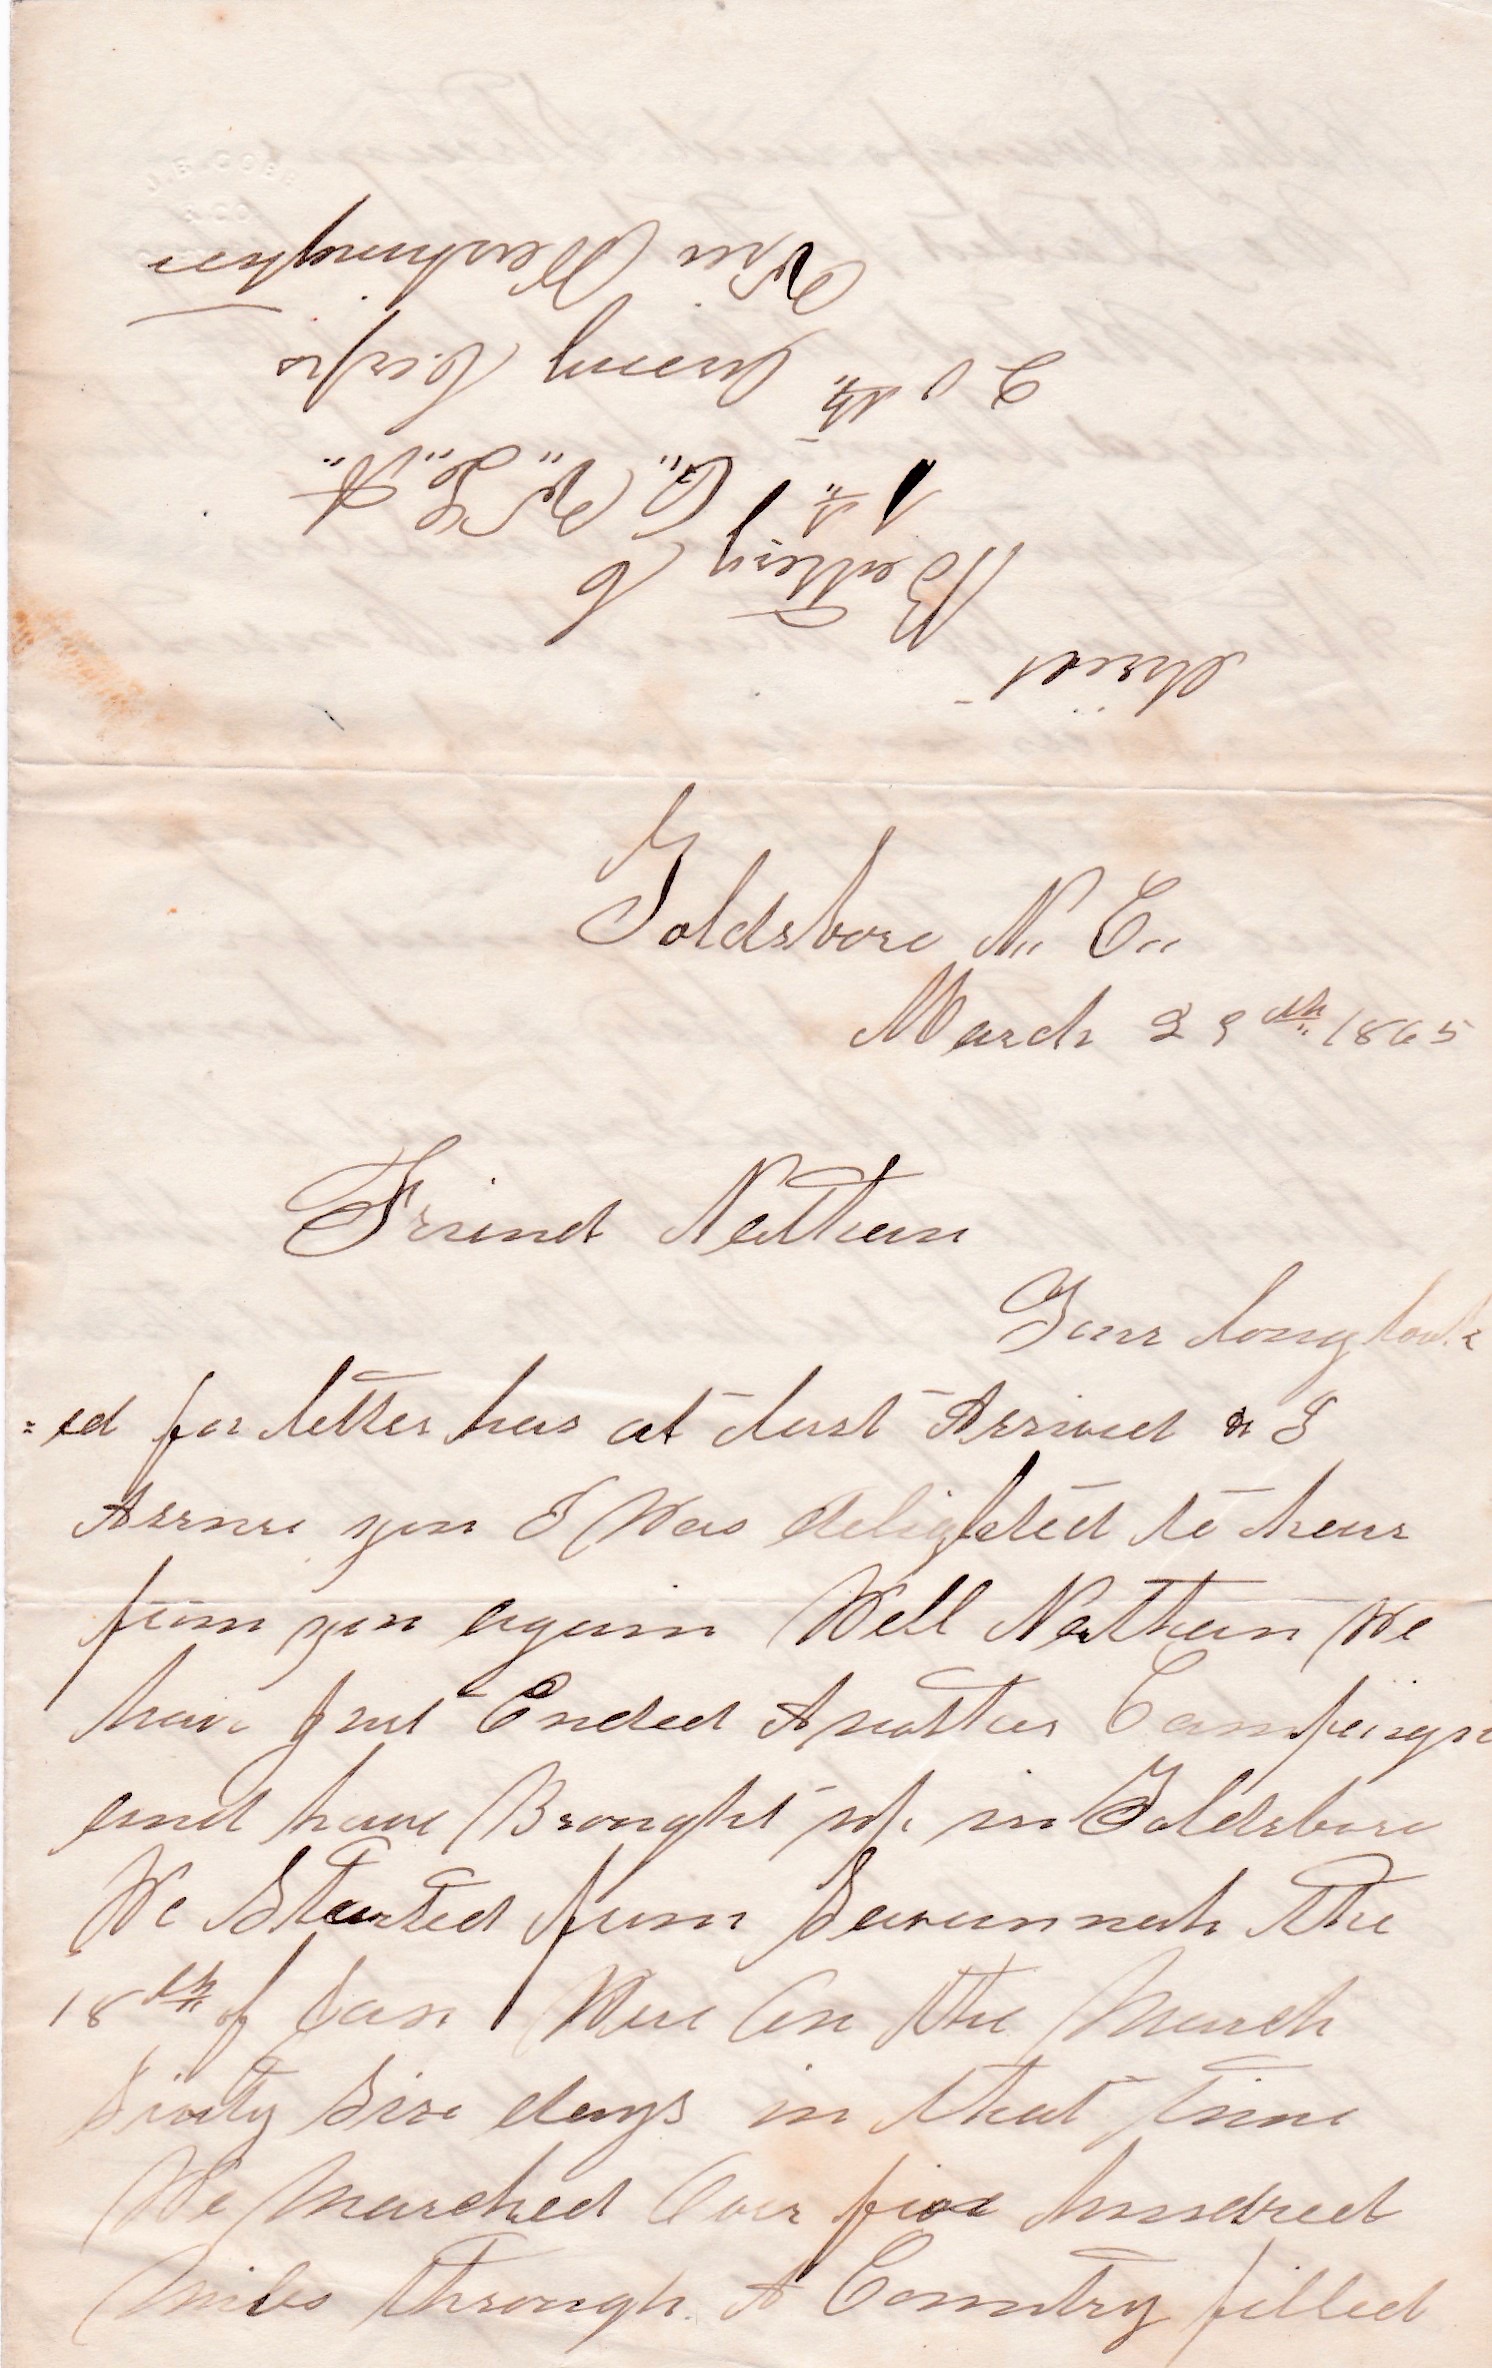 Direct
Battery C
1st,, O,, V,, L,, A,,
20th,, Army Corps
Via Washington
Goldsboro N,, C,,
March 29th,, 1865
Friend Nathan
Your long look
=ed for letter has at last Arrived & I
Assure you I Was delighted to hear
from you again Well Nathan We
have just Ended Another Campaign
and have Brought up in Goldsboro
We Started from Savannah the
18th,, of Jan Were On the March
Sixty Six days in that time
We Marched Over five hundred
Miles through A Country filled